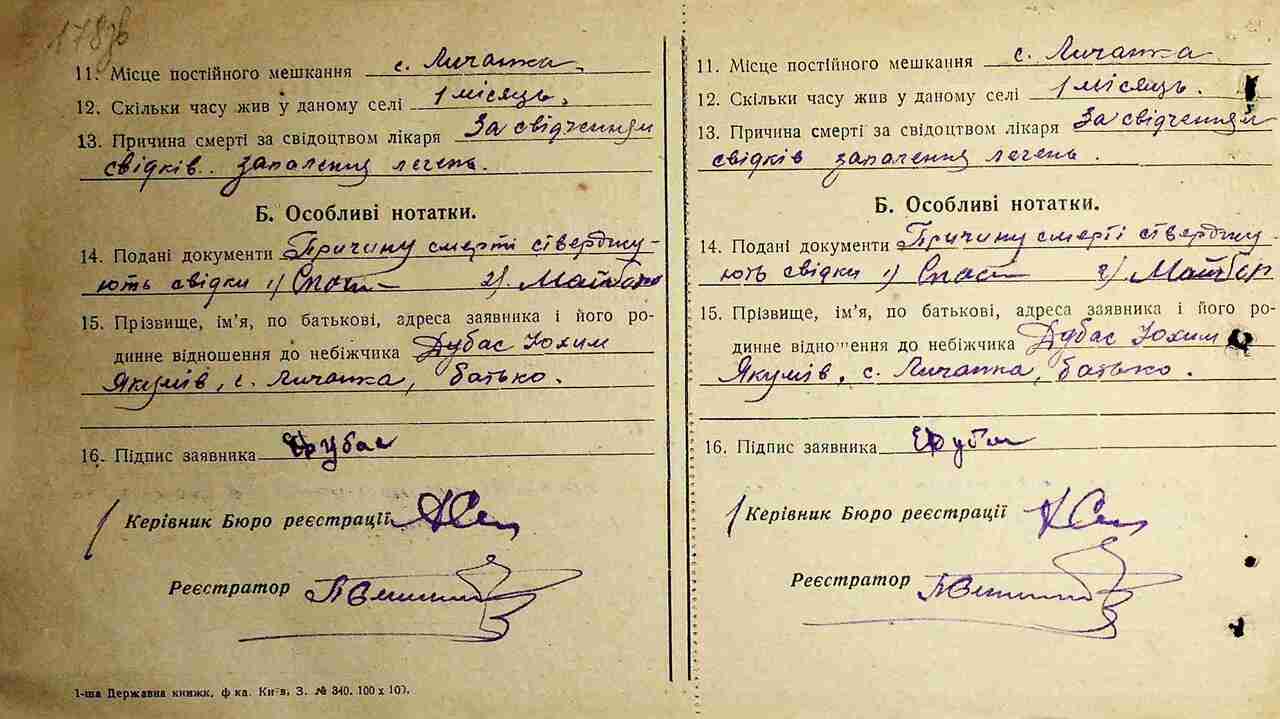 178зв
11. Місце постійного мешкання с. Личанка,
12. Скільки часу жив у даному селі 1 місяць,
13. Причина смерті за свідоцтвом лікаря За свідченням
свідків запалення легень.
Б. Особливі нотатки.
14. Подані документи Причину смерті стверджу-
ють свідки 1) 2).
15. Прізвище, ім'я, по батькові, адреса заявника і його ро-
динне відношення до небіжчика Дубас Юхим
Якумів, с. Личанка, батько.
16. Підпис заявника Дубас
Керівник Бюро реєстрації
Реєстратор
1-ша Державна книжк. ф-ка. Київ, З. № 340. 100 х 100.
11. Місце постійного мешкання с. Личанка
12. Скільки часу жив у даному селі 1 місяць.
13. Причина смерті за свідоцтвом лікаря За свідченням
свідків запалення легень.
Б. Особливі нотатки.
14. Подані документи Причину смерті стверджу
ють свідки 1) 2)
15. Прізвище, ім'я, по батькові, адреса заявника і його ро-
динне відношення до небіжчика Дубас Юхим
Якумів, с. Личанка, батько.
16. Підпис заявника Дубас
Керівник Бюро реєстрації
Реєстратор